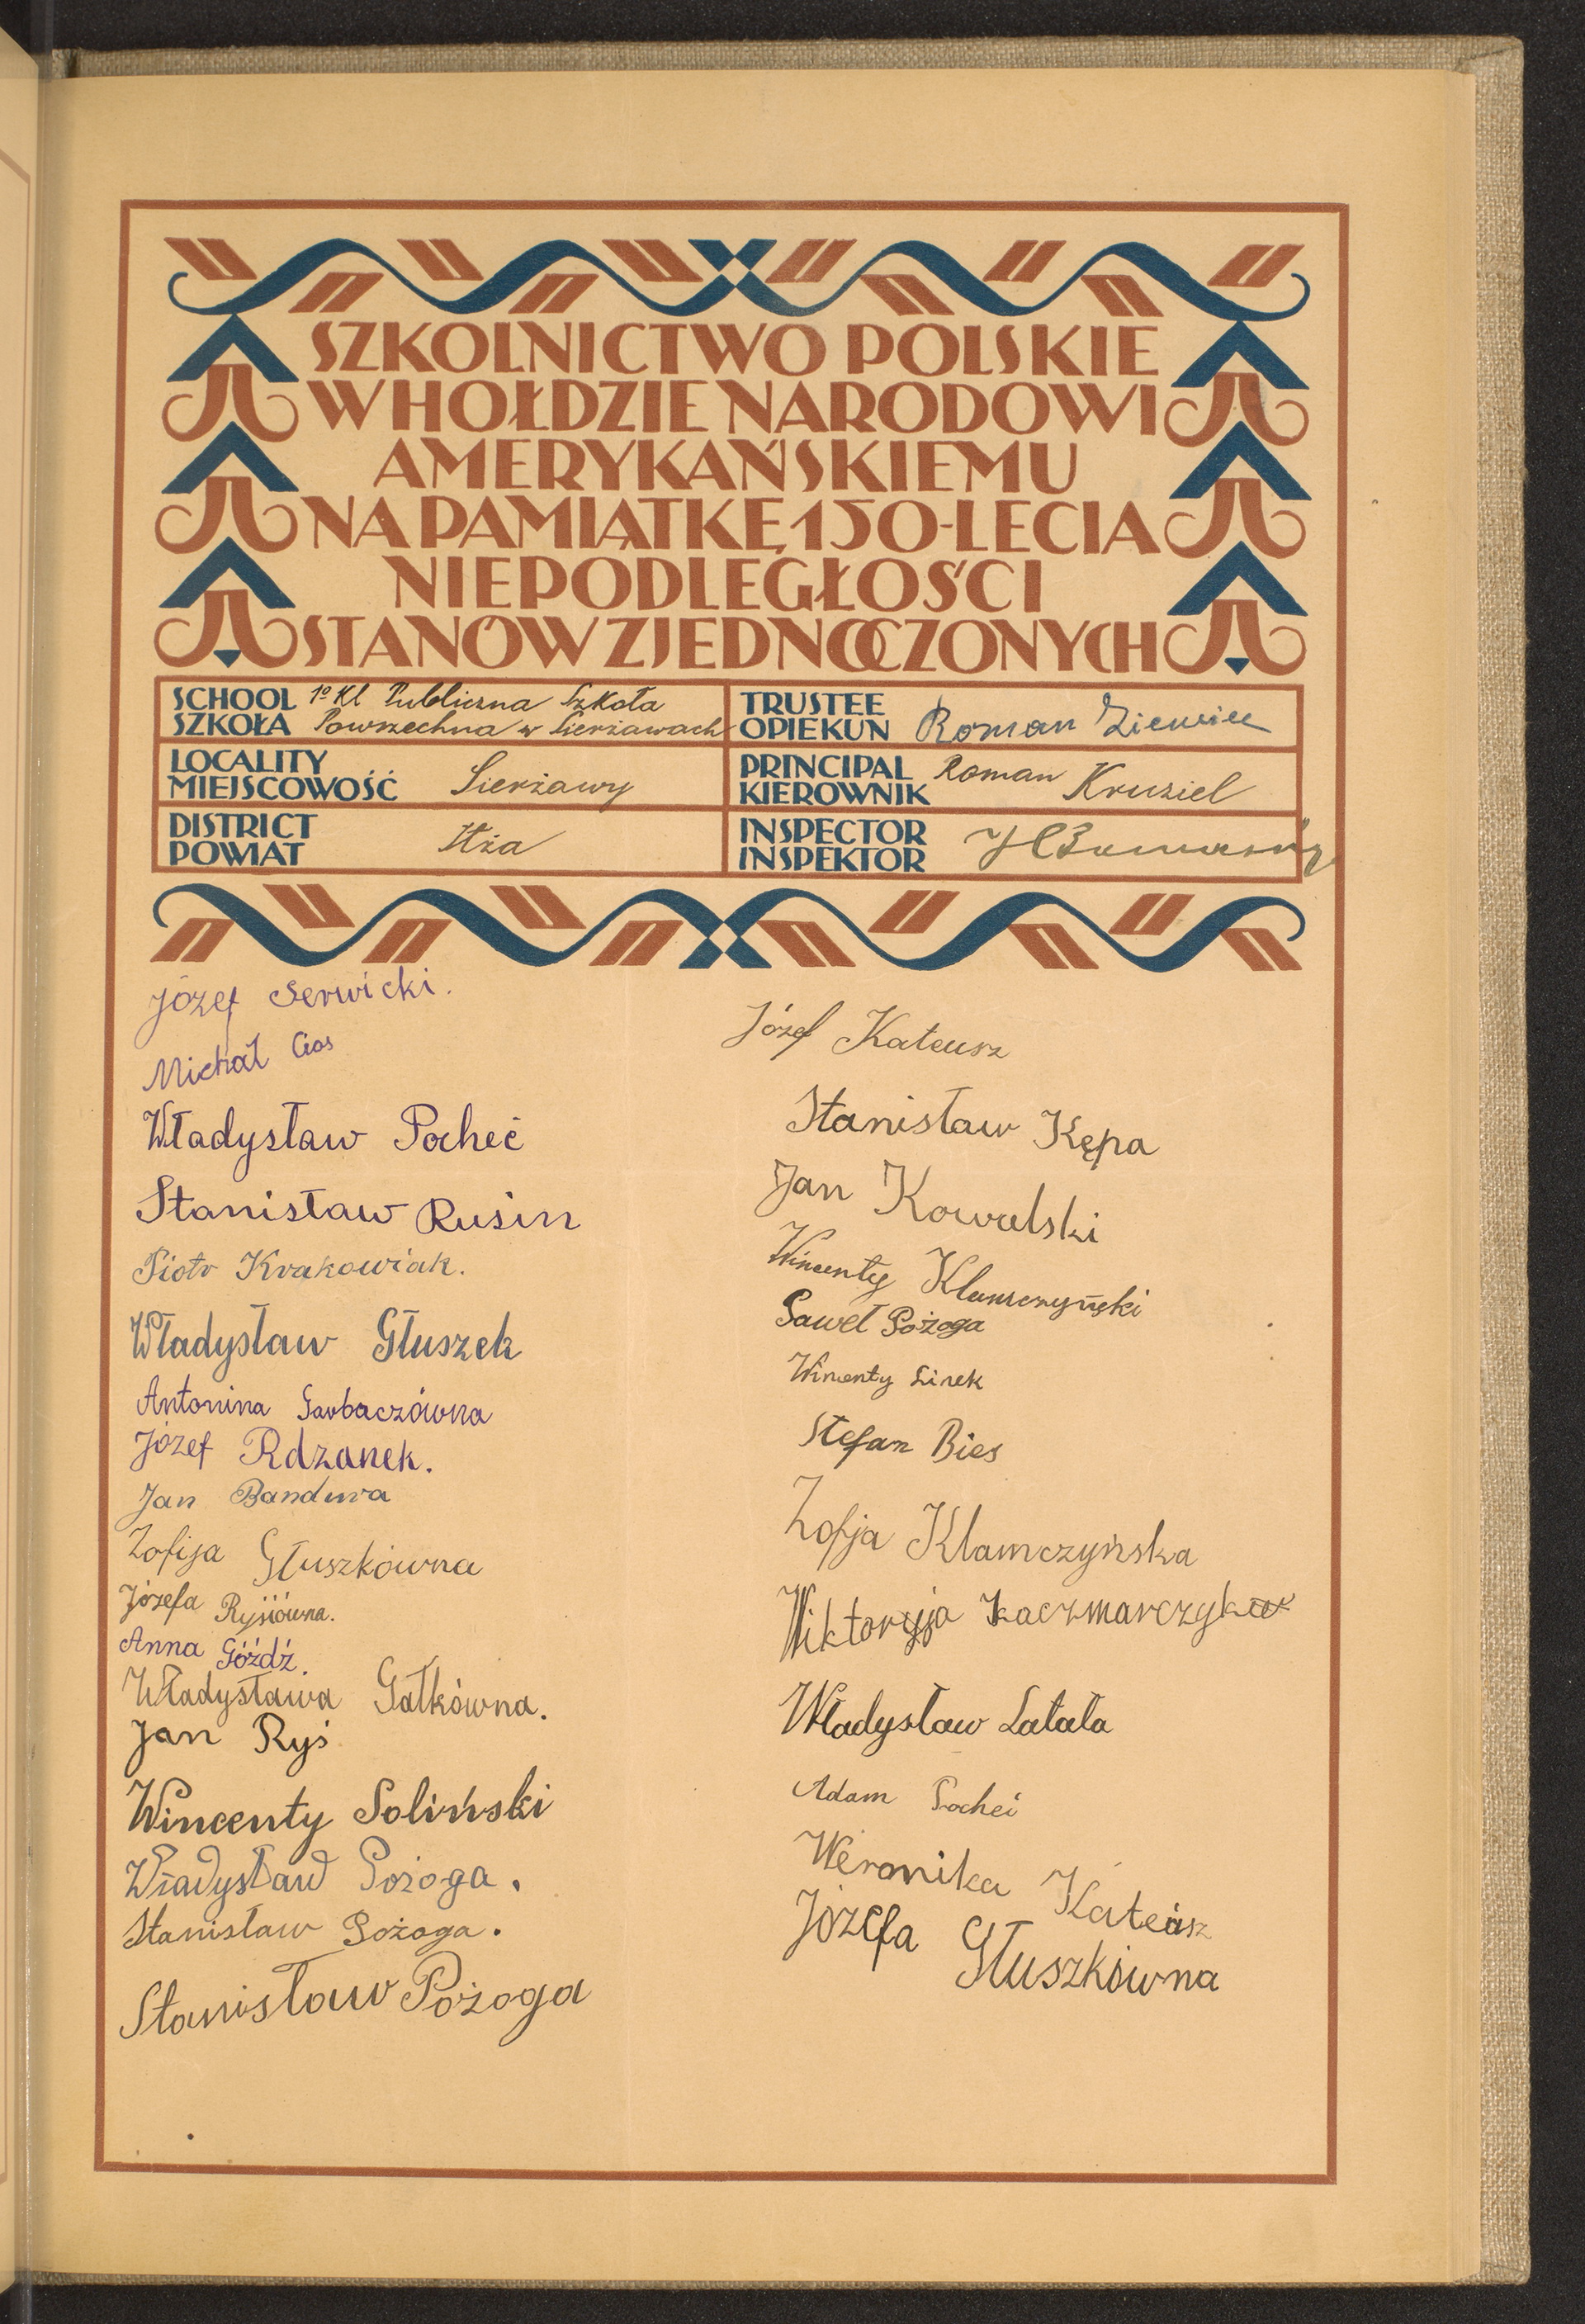 SZKOLNICTWO POLSKIE
W HOŁDZIE NARODOWI
AMERYKAŃSKIEMU
NA PAMIĄTKĘ 150-LECIA
NIEPODLEGŁOŚCI
STANÓW ZJEDNOCZONYCH
SCHOOL
SZKOŁA
1º Kl Publiczna Szkoła
Powszechna w Sierżawach
TRUSTEE
OPIEKUN
Roman
LOCALITY
MIEJSCOWOŚĆ
Sierżawy
PRINCIPAL
KIEROWNIK
Roman Kruziel
DISTRICT
POWIAT
Iłża
INSPECTOR
INSPEKTOR
Józef Serwicki.
Michał Cios
Władysław Pocheć
Stanisław Rusin
Piotr Krakowiak.
Władysław Głuszek
Antonina Garbaczówna
Józef Rdzanek.
Jan Bandura
Zofija Głuszkówna
Józefa Rysiówna.
Anna Góźdź.
Władysława Gałkówna.
Jan Ryś
Wincenty Soliński
Władysław Pożoga.
Stanisław Pożoga.
Stanisław Pożoga
Józef Kateusz
Stanisław Kępa
Jan Kowalski
Wincenty Klamczyński
Paweł Pożoga
Wincenty Lirek
Stefan Bies
Zofja Klamczyńska
Wiktoryja
Władysław Latała
Adam Pocheć
Weronika Kateusz
Józefa Głuszkówna